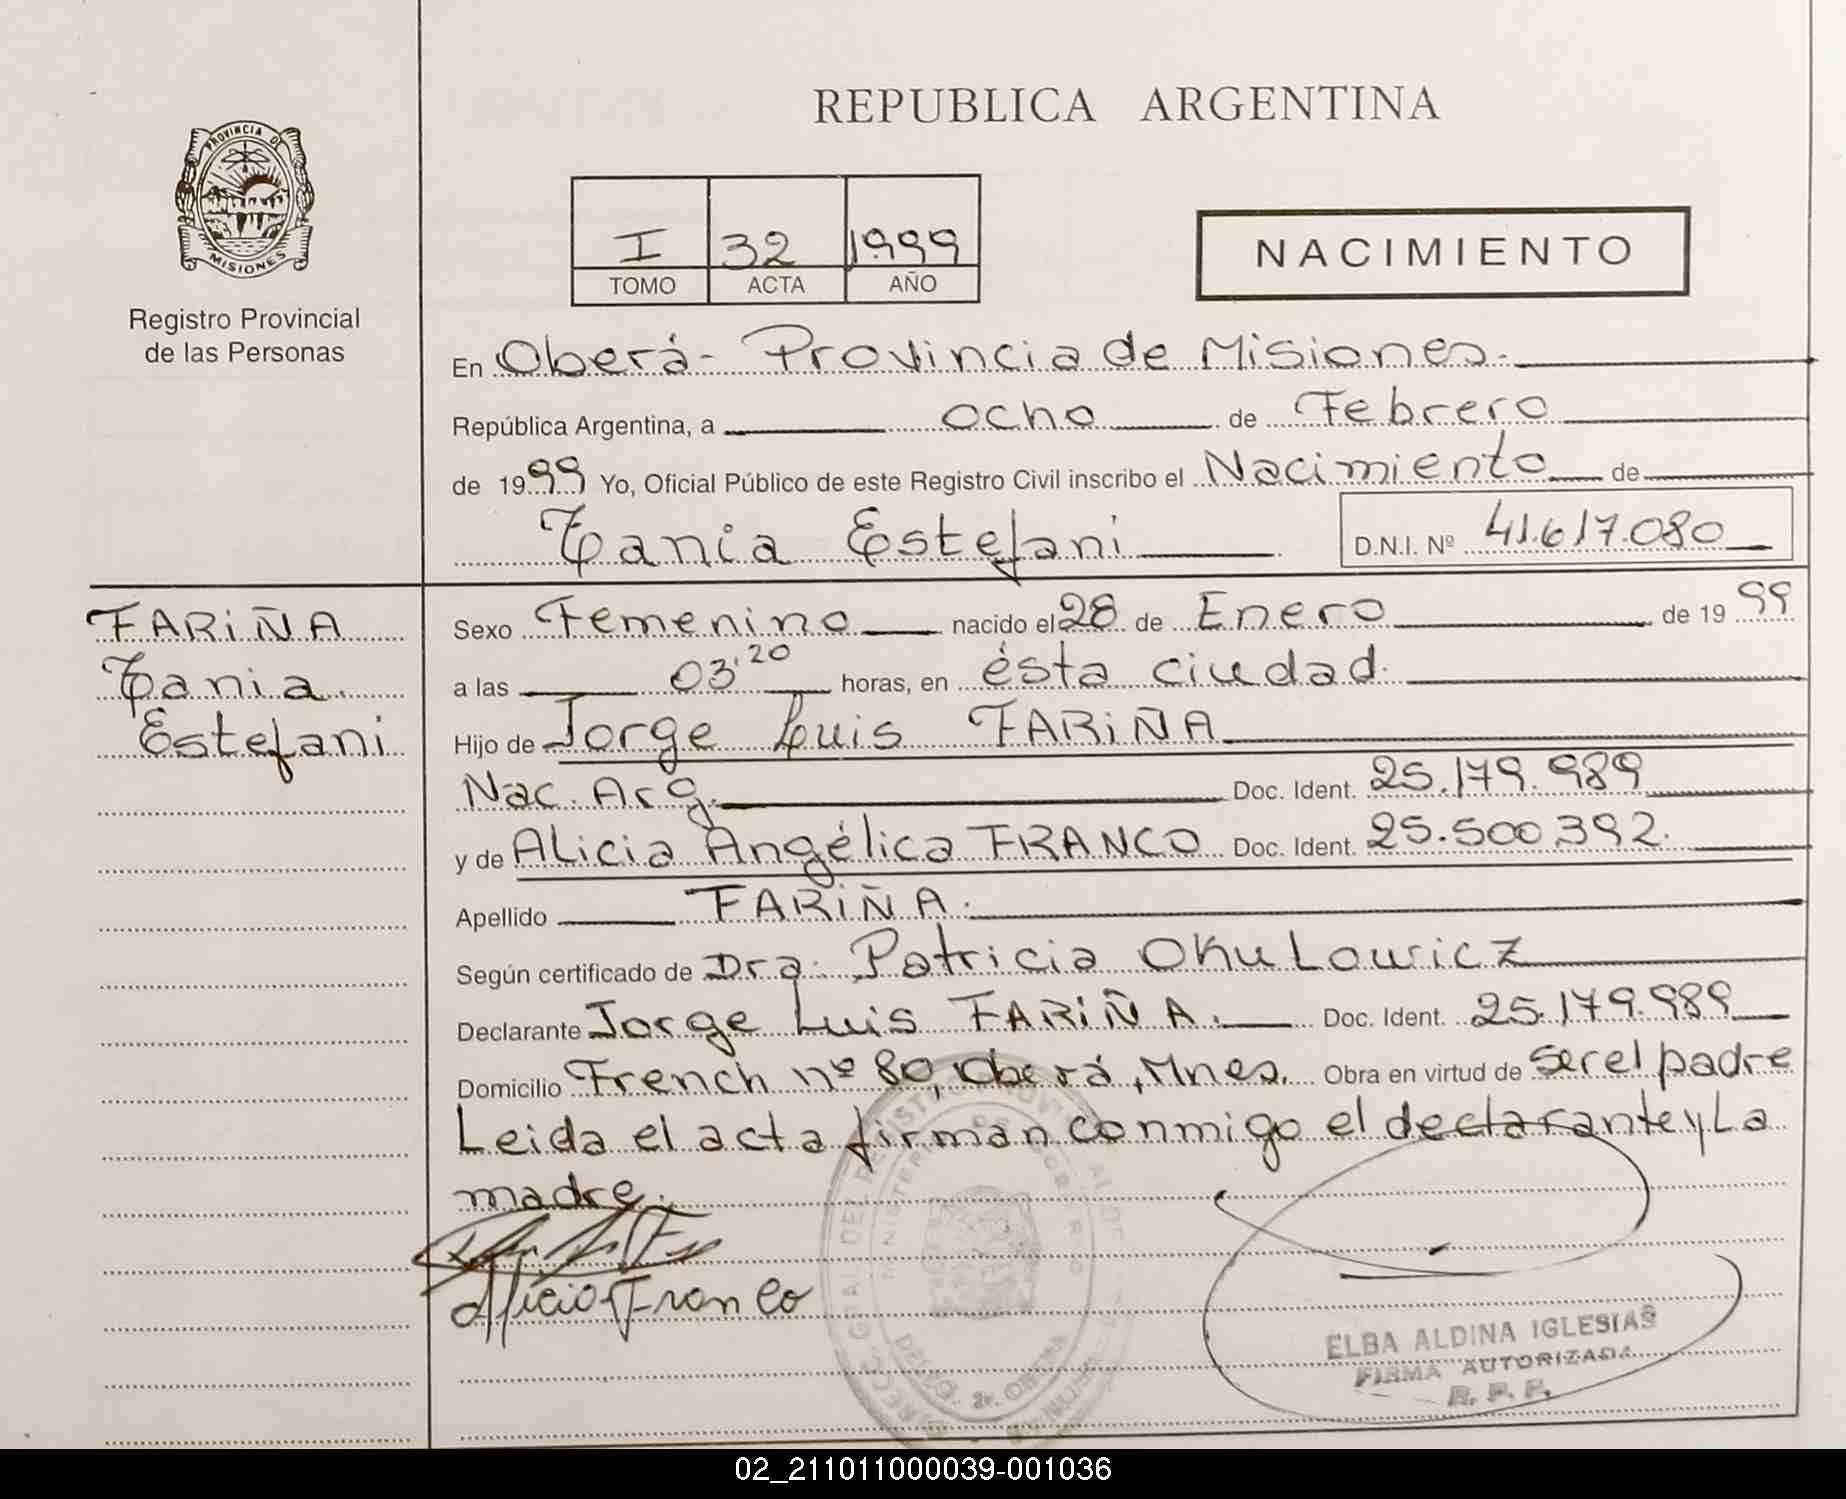 REPUBLICA ARGENTINA
PROVINCIA DE
MISIONES
Registro Provincial
de las Personas
I 32 1999
TOMO ACTA AÑO
NACIMIENTO
En Oberá - Provincia de Misiones.
República Argentina, a ocho de Febrero
de 1999 Yo, Oficial Público de este Registro Civil inscribo el Nacimiento de
Tania Estefani D.N.I. Nº 41.617.080
FARIÑA
Tania
Estefani
Sexo Femenino nacido el 28 de Enero de 19 99
a las 03'20 horas, en ésta ciudad.
Hijo de Jorge Luis FARIÑA
Nac. Arg. Doc. Ident. 25.179.989
y de Alicia Angélica FRANCO Doc. Ident. 25.500.392.
Apellido FARIÑA.
Según certificado de Dra. Patricia Okulowicz
Declarante Jorge Luis FARIÑA. Doc. Ident. 25.179.989
Domicilio French nº 80, Oberá, Mnes. Obra en virtud de ser el padre
Leida el acta firman conmigo el declarante y La
madre.
Alicia Franco
ELBA ALDINA IGLESIAS
FIRMA AUTORIZADA
R. P. P.
02_211011000039-001036